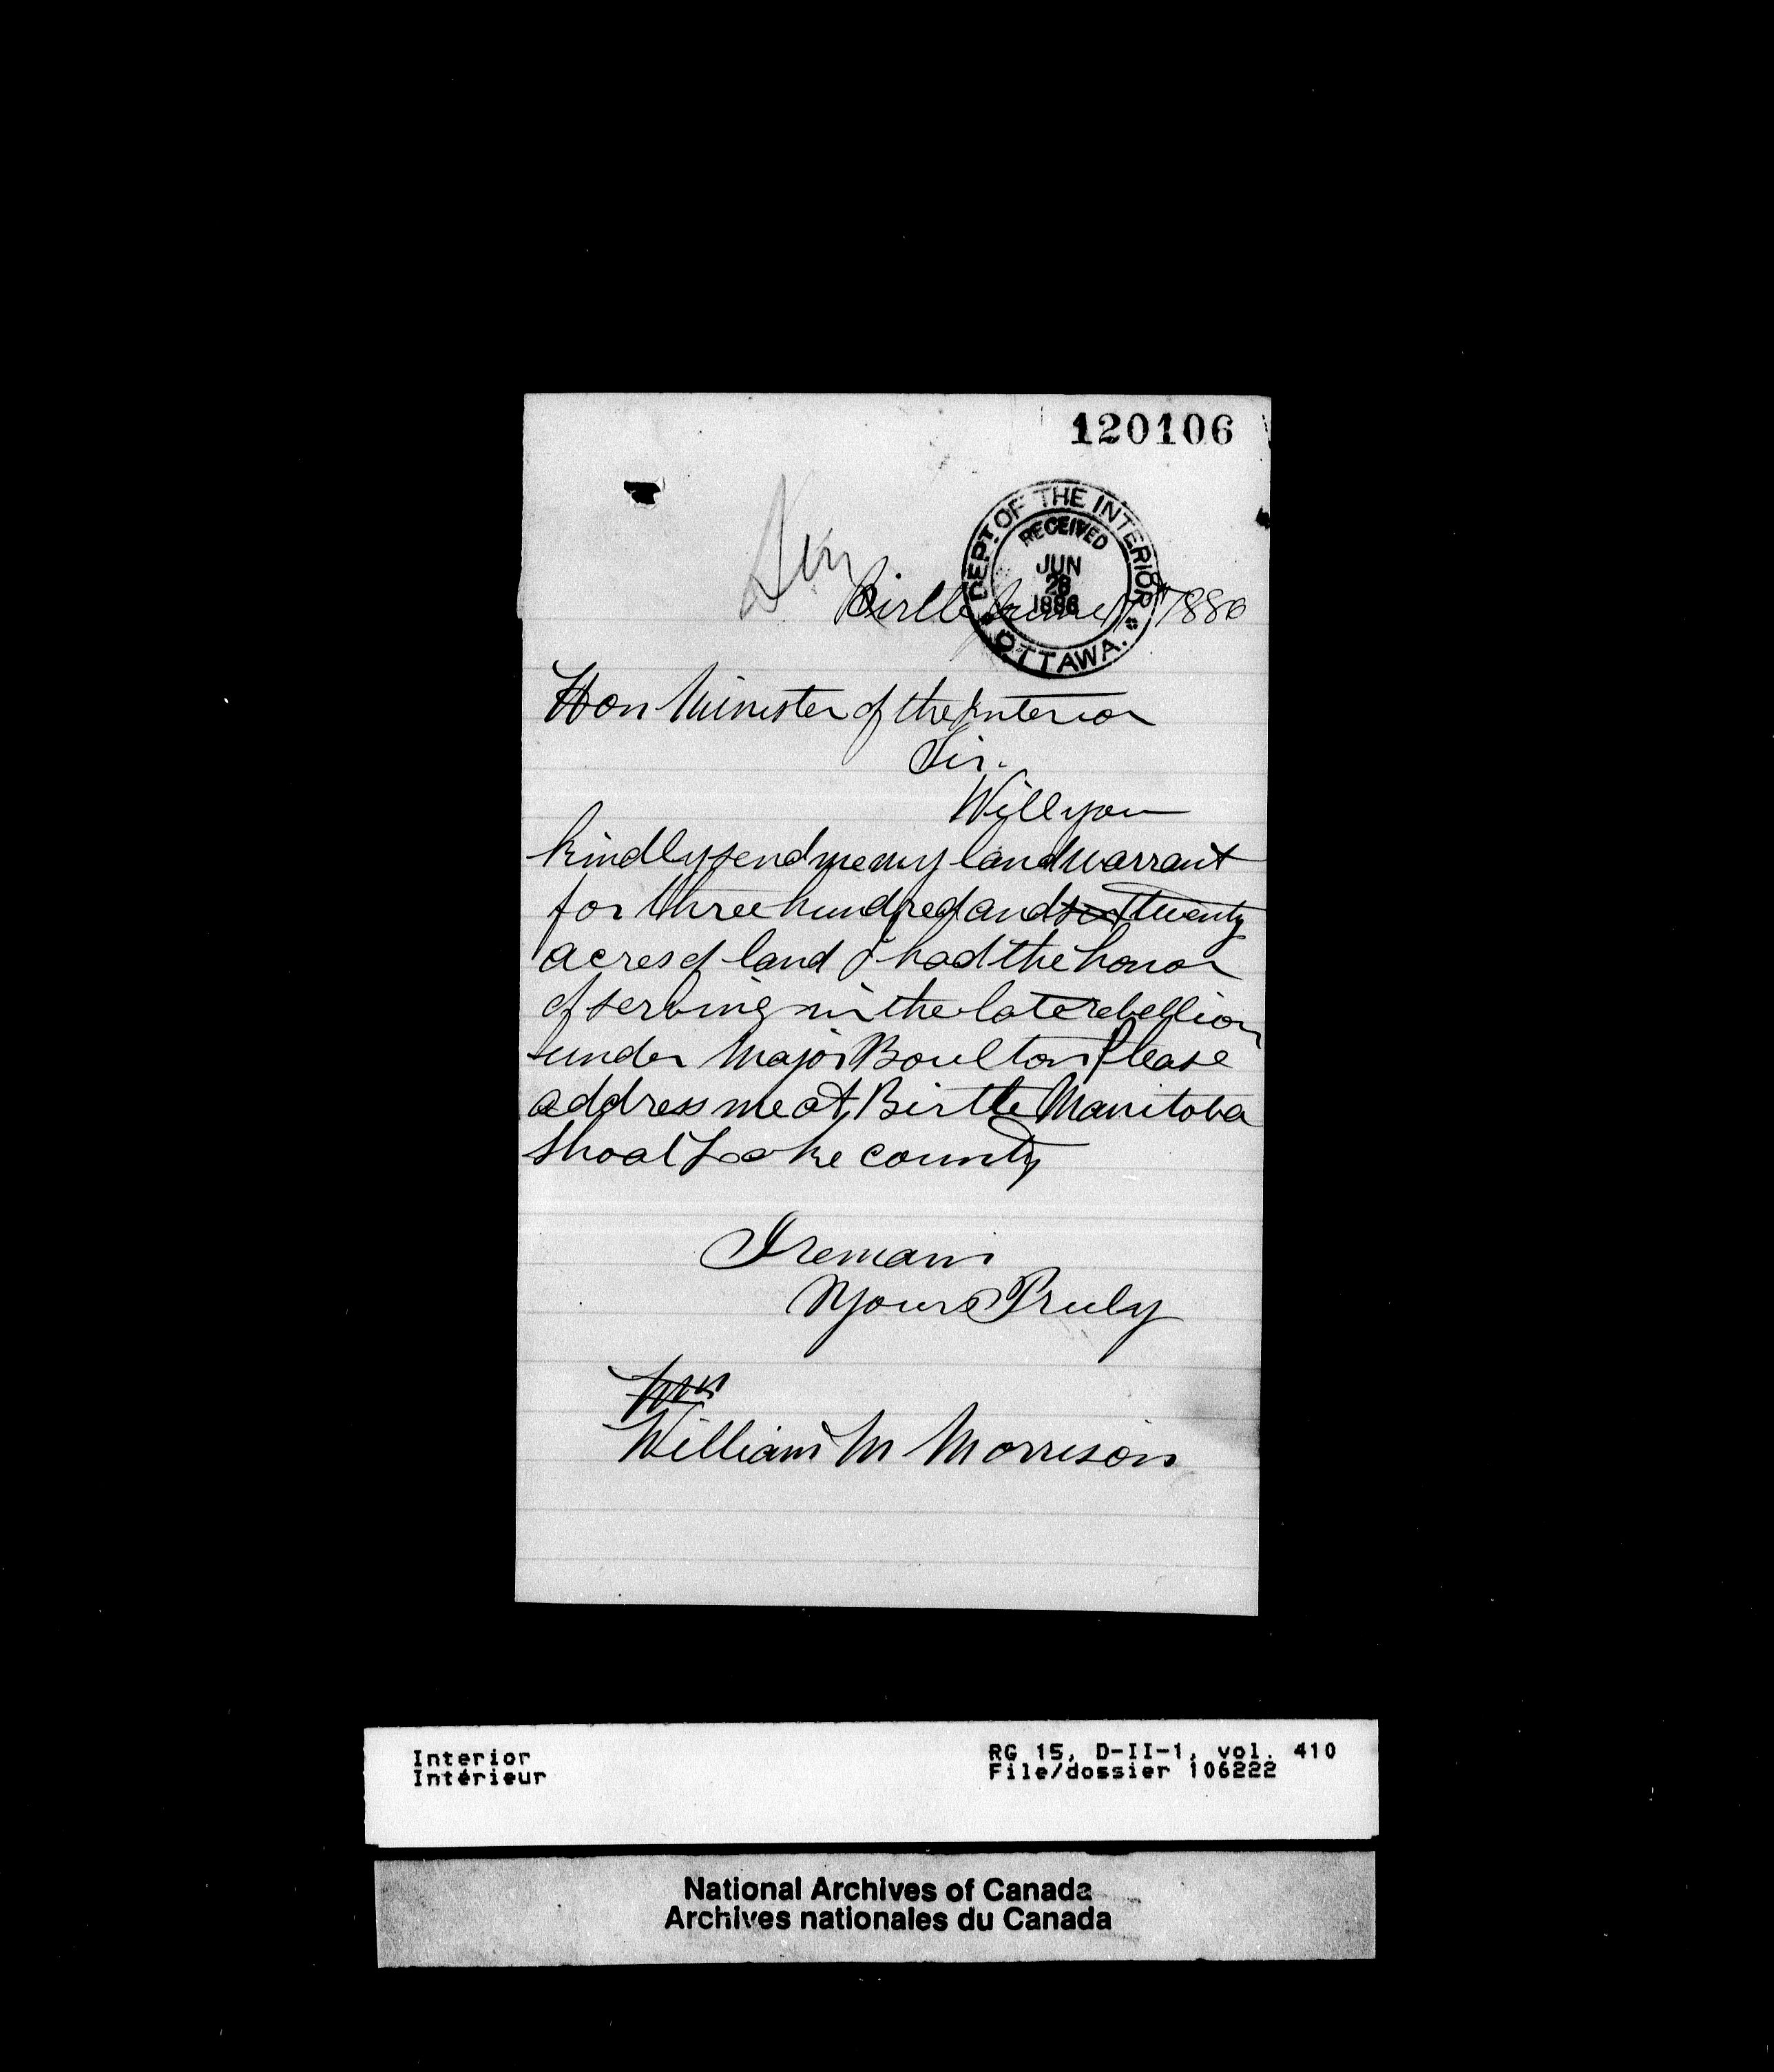 120106
DEPT. OF THE INTERIOR
RECEIVED
JUN
28
1886
OTTAWA.
Birtle June 1886
Hon Minister of the Interior
Sir.
Will you
kindly send me my land warrant
for three hundred and twenty
acres of land I had the honor
of serving in the late rebellion
under Major Boulton Please
address me at Birtle Manitoba
Shoal Lake county
I remain
Yours Truly
Wm
William M Morrison
Interior
Intérieur
RG 15, D-II-1, vol. 410
File/dossier 106222
National Archives of Canada
Archives nationales du Canada